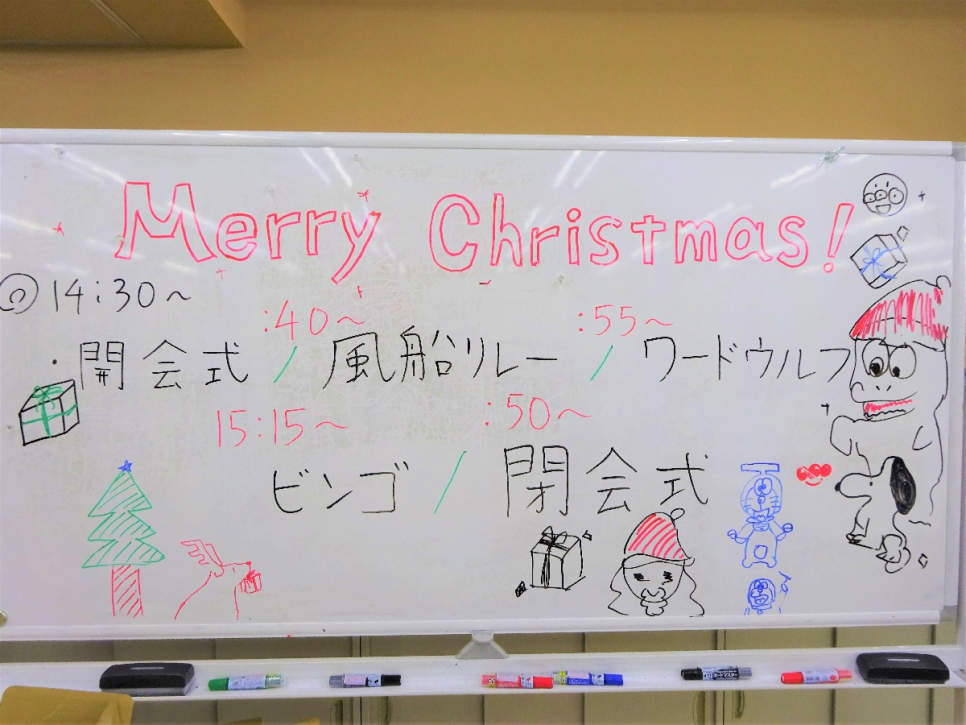 Merry Christmas!
14:30～
:40～ :55～
・開会式 / 風船リレー / ワードウルフ
15:15～ :50～
ビンゴ / 閉会式